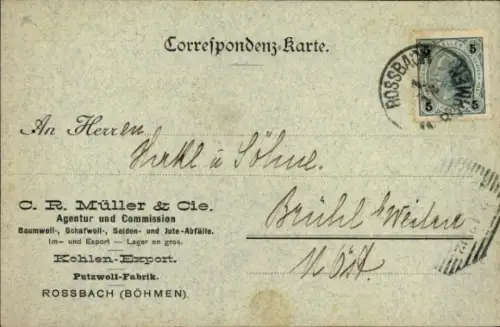 Correspondenz-Karte.
5 5
5 5
ROSSBACH
An Herren
& Söhne.
C. R. Müller & Cie.
Agentur und Commission
Baumwoll-, Schafwoll-, Seiden- und Jute-Abfälle.
Im- und Export — Lager en gros.
Kohlen-Export.
Putzwoll-Fabrik.
ROSSBACH (BÖHMEN).
Brühl b/Weitra
N/Öst.